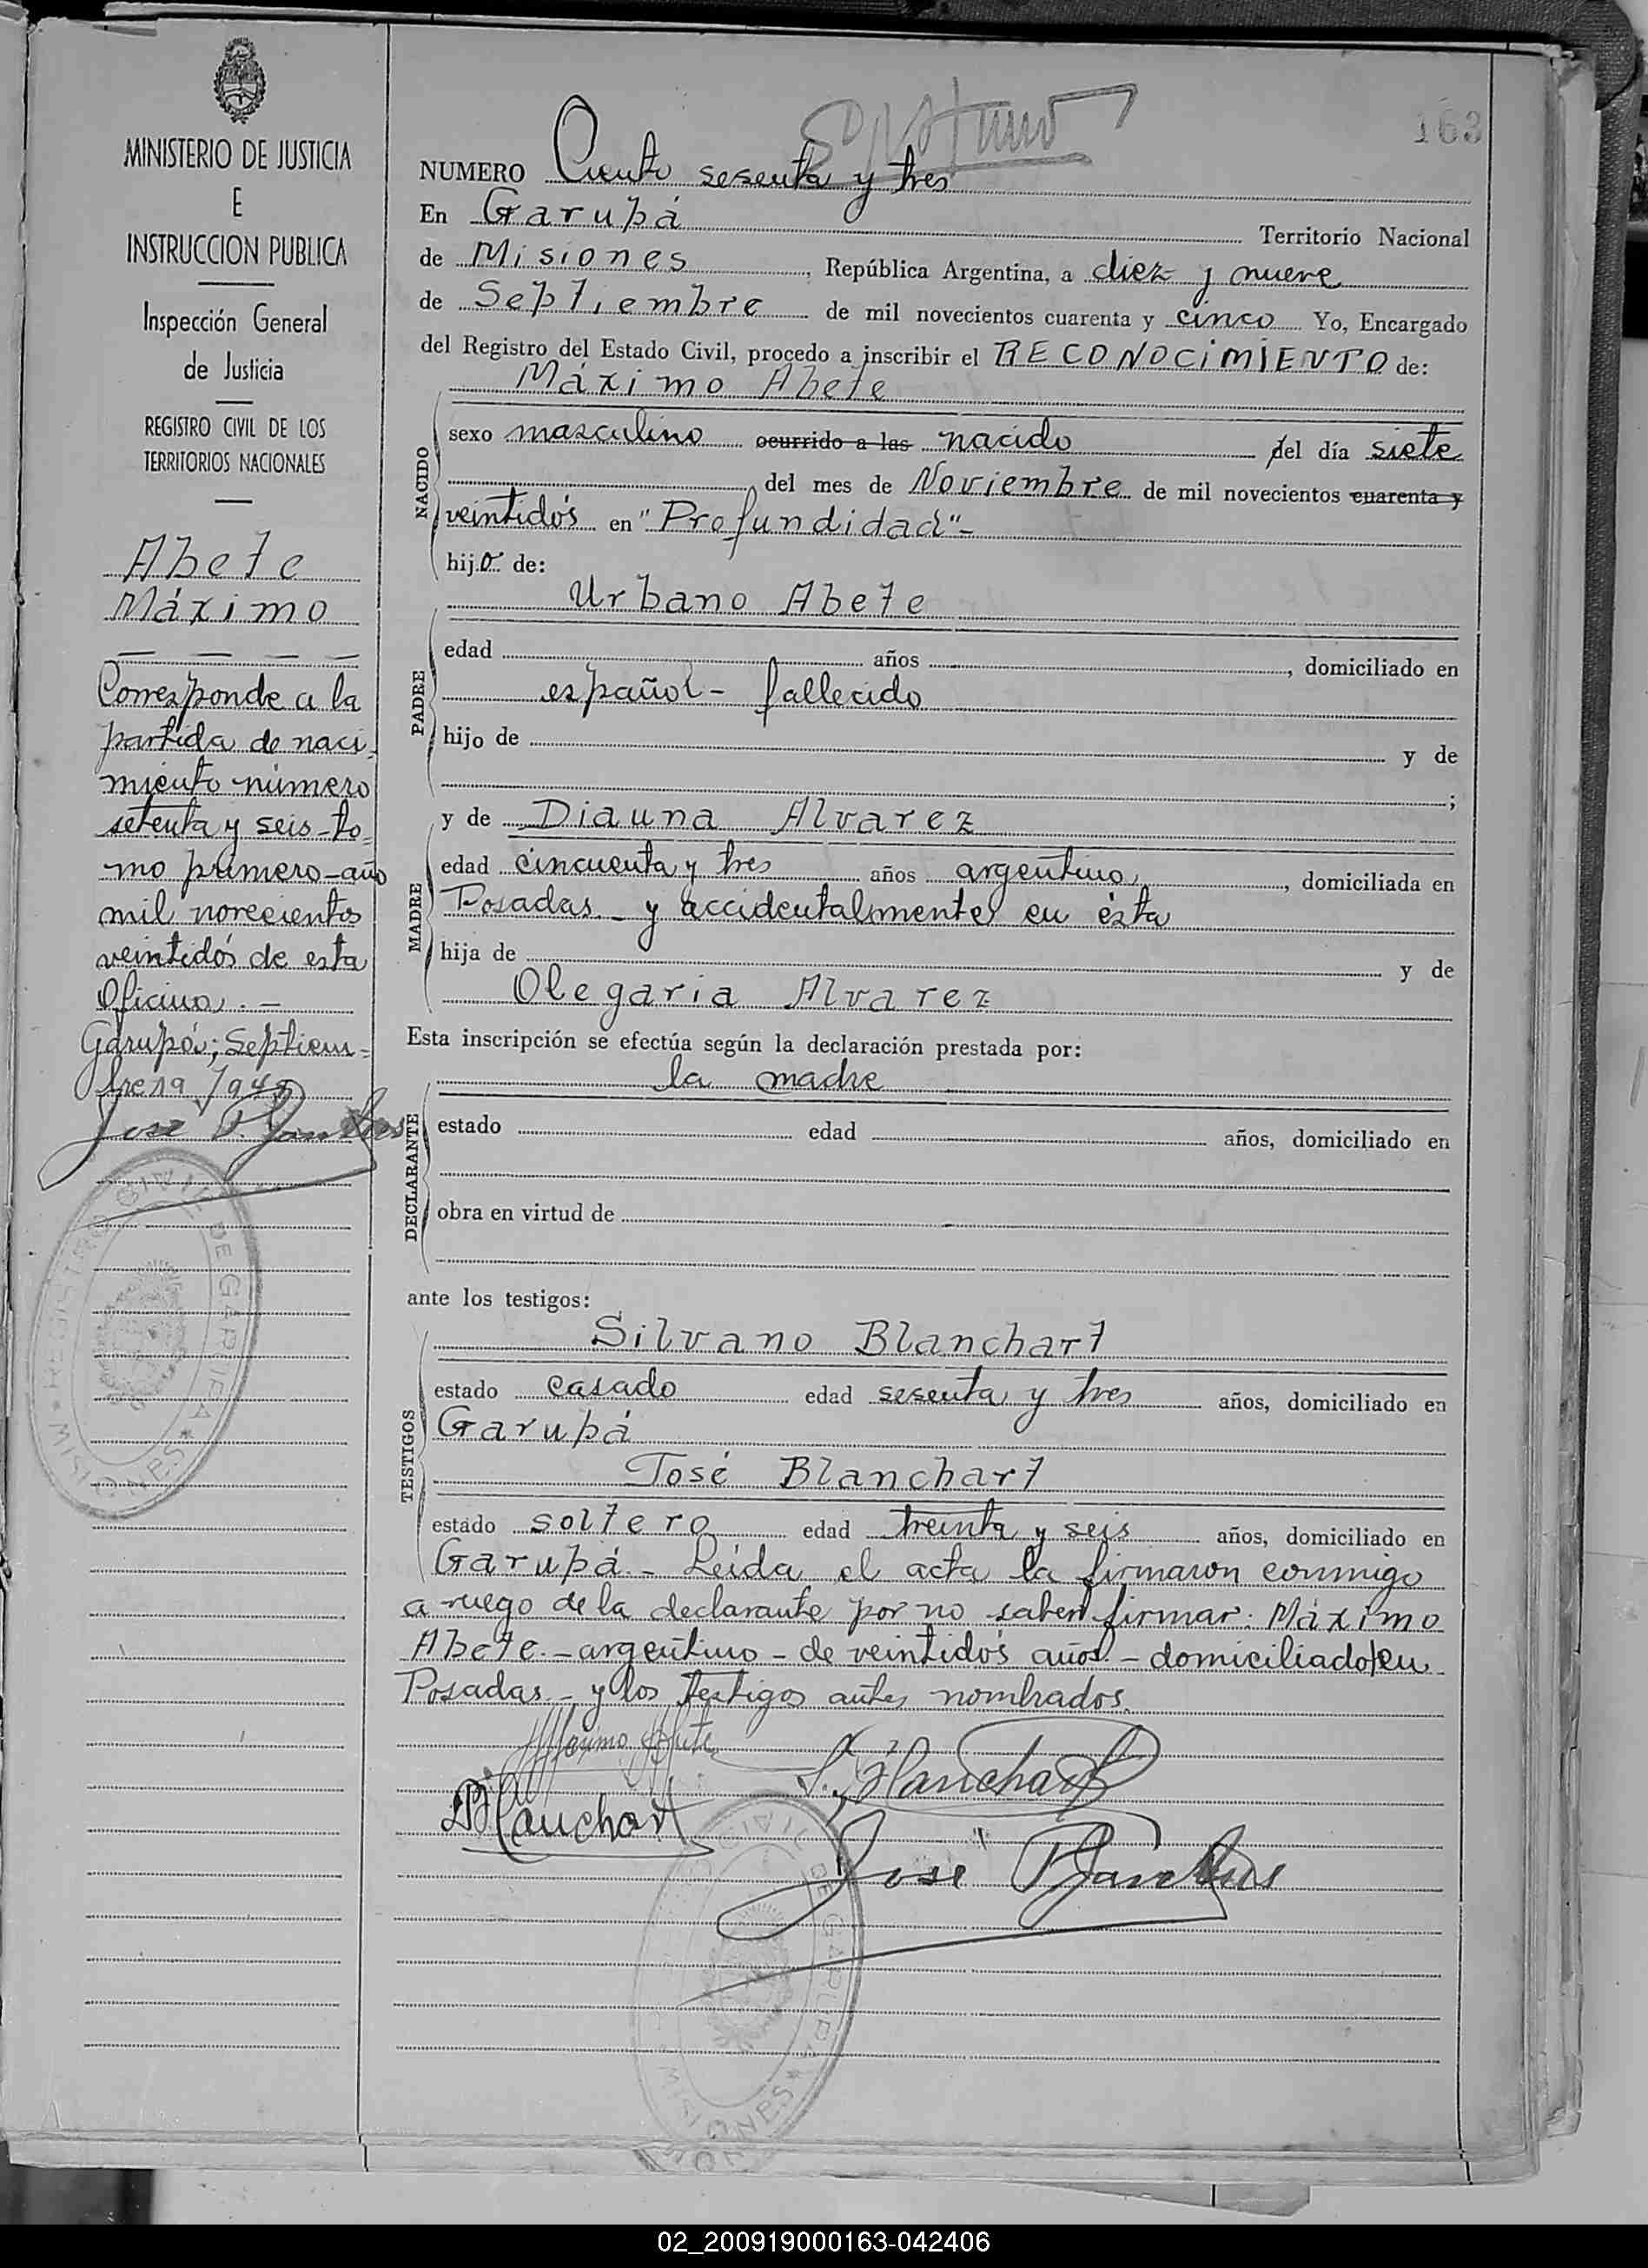 MINISTERIO DE JUSTICIA
E
INSTRUCCION PUBLICA
Inspección General
de Justicia
REGISTRO CIVIL DE LOS
TERRITORIOS NACIONALES
Abete
Máximo
Corresponde a la
partida de naci-
miento número
setenta y seis - to-
mo primero - año
mil novecientos
veintidós de esta
Oficina. -
Garupá; Septiem-
bre 19/945
José
REGISTRO CIVIL DE GARUPA
* MISIONES *
163
NUMERO Ciento sesenta y tres
En Garupá Territorio Nacional
de Misiones, República Argentina, a diez y nueve
de Septiembre de mil novecientos cuarenta y cinco Yo, Encargado
del Registro del Estado Civil, procedo a inscribir el RECONOCIMIENTO de:
Máximo Abete
NACIDO
sexo masculino ocurrido a las nacido del día siete
del mes de Noviembre de mil novecientos cuarenta y
veintidós en "Profundidad"-
hijo de:
Urbano Abete
PADRE
edad años , domiciliado en
español - fallecido
hijo de y de
;
y de Diauna Alvarez
MADRE
edad cincuenta y tres años argentina, , domiciliada en
Posadas - y accidentalmente en ésta
hija de y de
Olegaria Alvarez
Esta inscripción se efectúa según la declaración prestada por:
la madre
DECLARANTE
estado edad años, domiciliado en
obra en virtud de
ante los testigos:
Silvano Blanchart
TESTIGOS
estado casado edad sesenta y tres años, domiciliado en
Garupá
José Blanchart
estado soltero edad treinta y seis años, domiciliado en
Garupá. - Leída el acta la firmaron conmigo
a ruego de la declarante por no saber firmar: Máximo
Abete. - argentino - de veintidós años - domiciliado en
Posadas - y los testigos antes nombrados.
Maximo Abete
S. Blanchart
Blanchart
José
REGISTRO CIVIL DE GARUPA
* MISIONES *
02_200919000163-042406